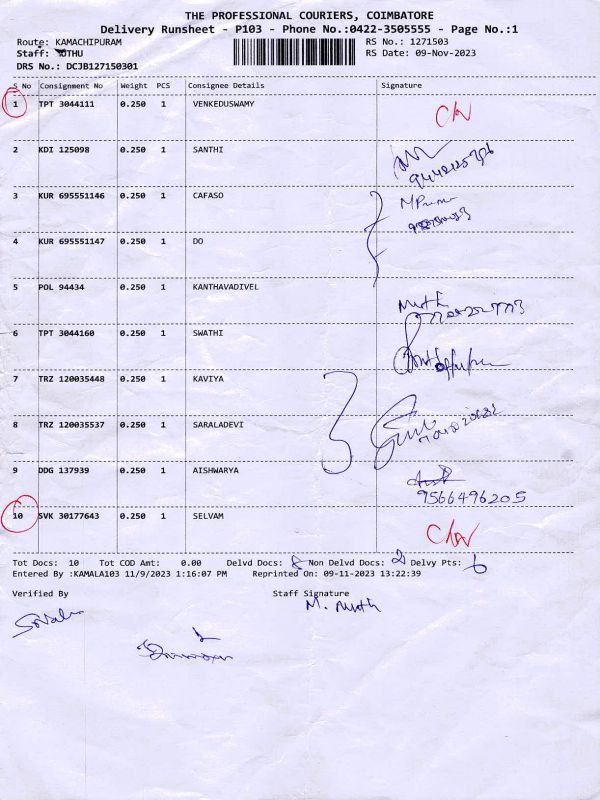 THE PROFESSIONAL COURIERS, COIMBATORE
Delivery Runsheet - P103 - Phone No.:0422-3505555 - Page No.:1
Route: KAMACHIPURAM RS No.: 1271503
Staff: MUTHU RS Date: 09-Nov-2023
DRS No.: DCJB127150301
S No Consignment No Weight PCS Consignee Details Signature
1 TPT 3044111 0.250 1 VENKEDUSWAMY
2 KDI 125098 0.250 1 SANTHI
3 KUR 695551146 0.250 1 CAFASO
4 KUR 695551147 0.250 1 DO
5 POL 94434 0.250 1 KANTHAVADIVEL
6 TPT 3044160 0.250 1 SWATHI
7 TRZ 120035448 0.250 1 KAVIYA
8 TRZ 120035537 0.250 1 SARALADEVI
9 DDG 137939 0.250 1 AISHWARYA
9566496205
10 SVK 30177643 0.250 1 SELVAM
Tot Docs: 10 Tot COD Amt: 0.00 Delvd Docs: 8 Non Delvd Docs: 2 Delvy Pts: 6
Entered By :KAMALA103 11/9/2023 1:16:07 PM Reprinted On: 09-11-2023 13:22:39
Verified By Staff Signature
M. Muth